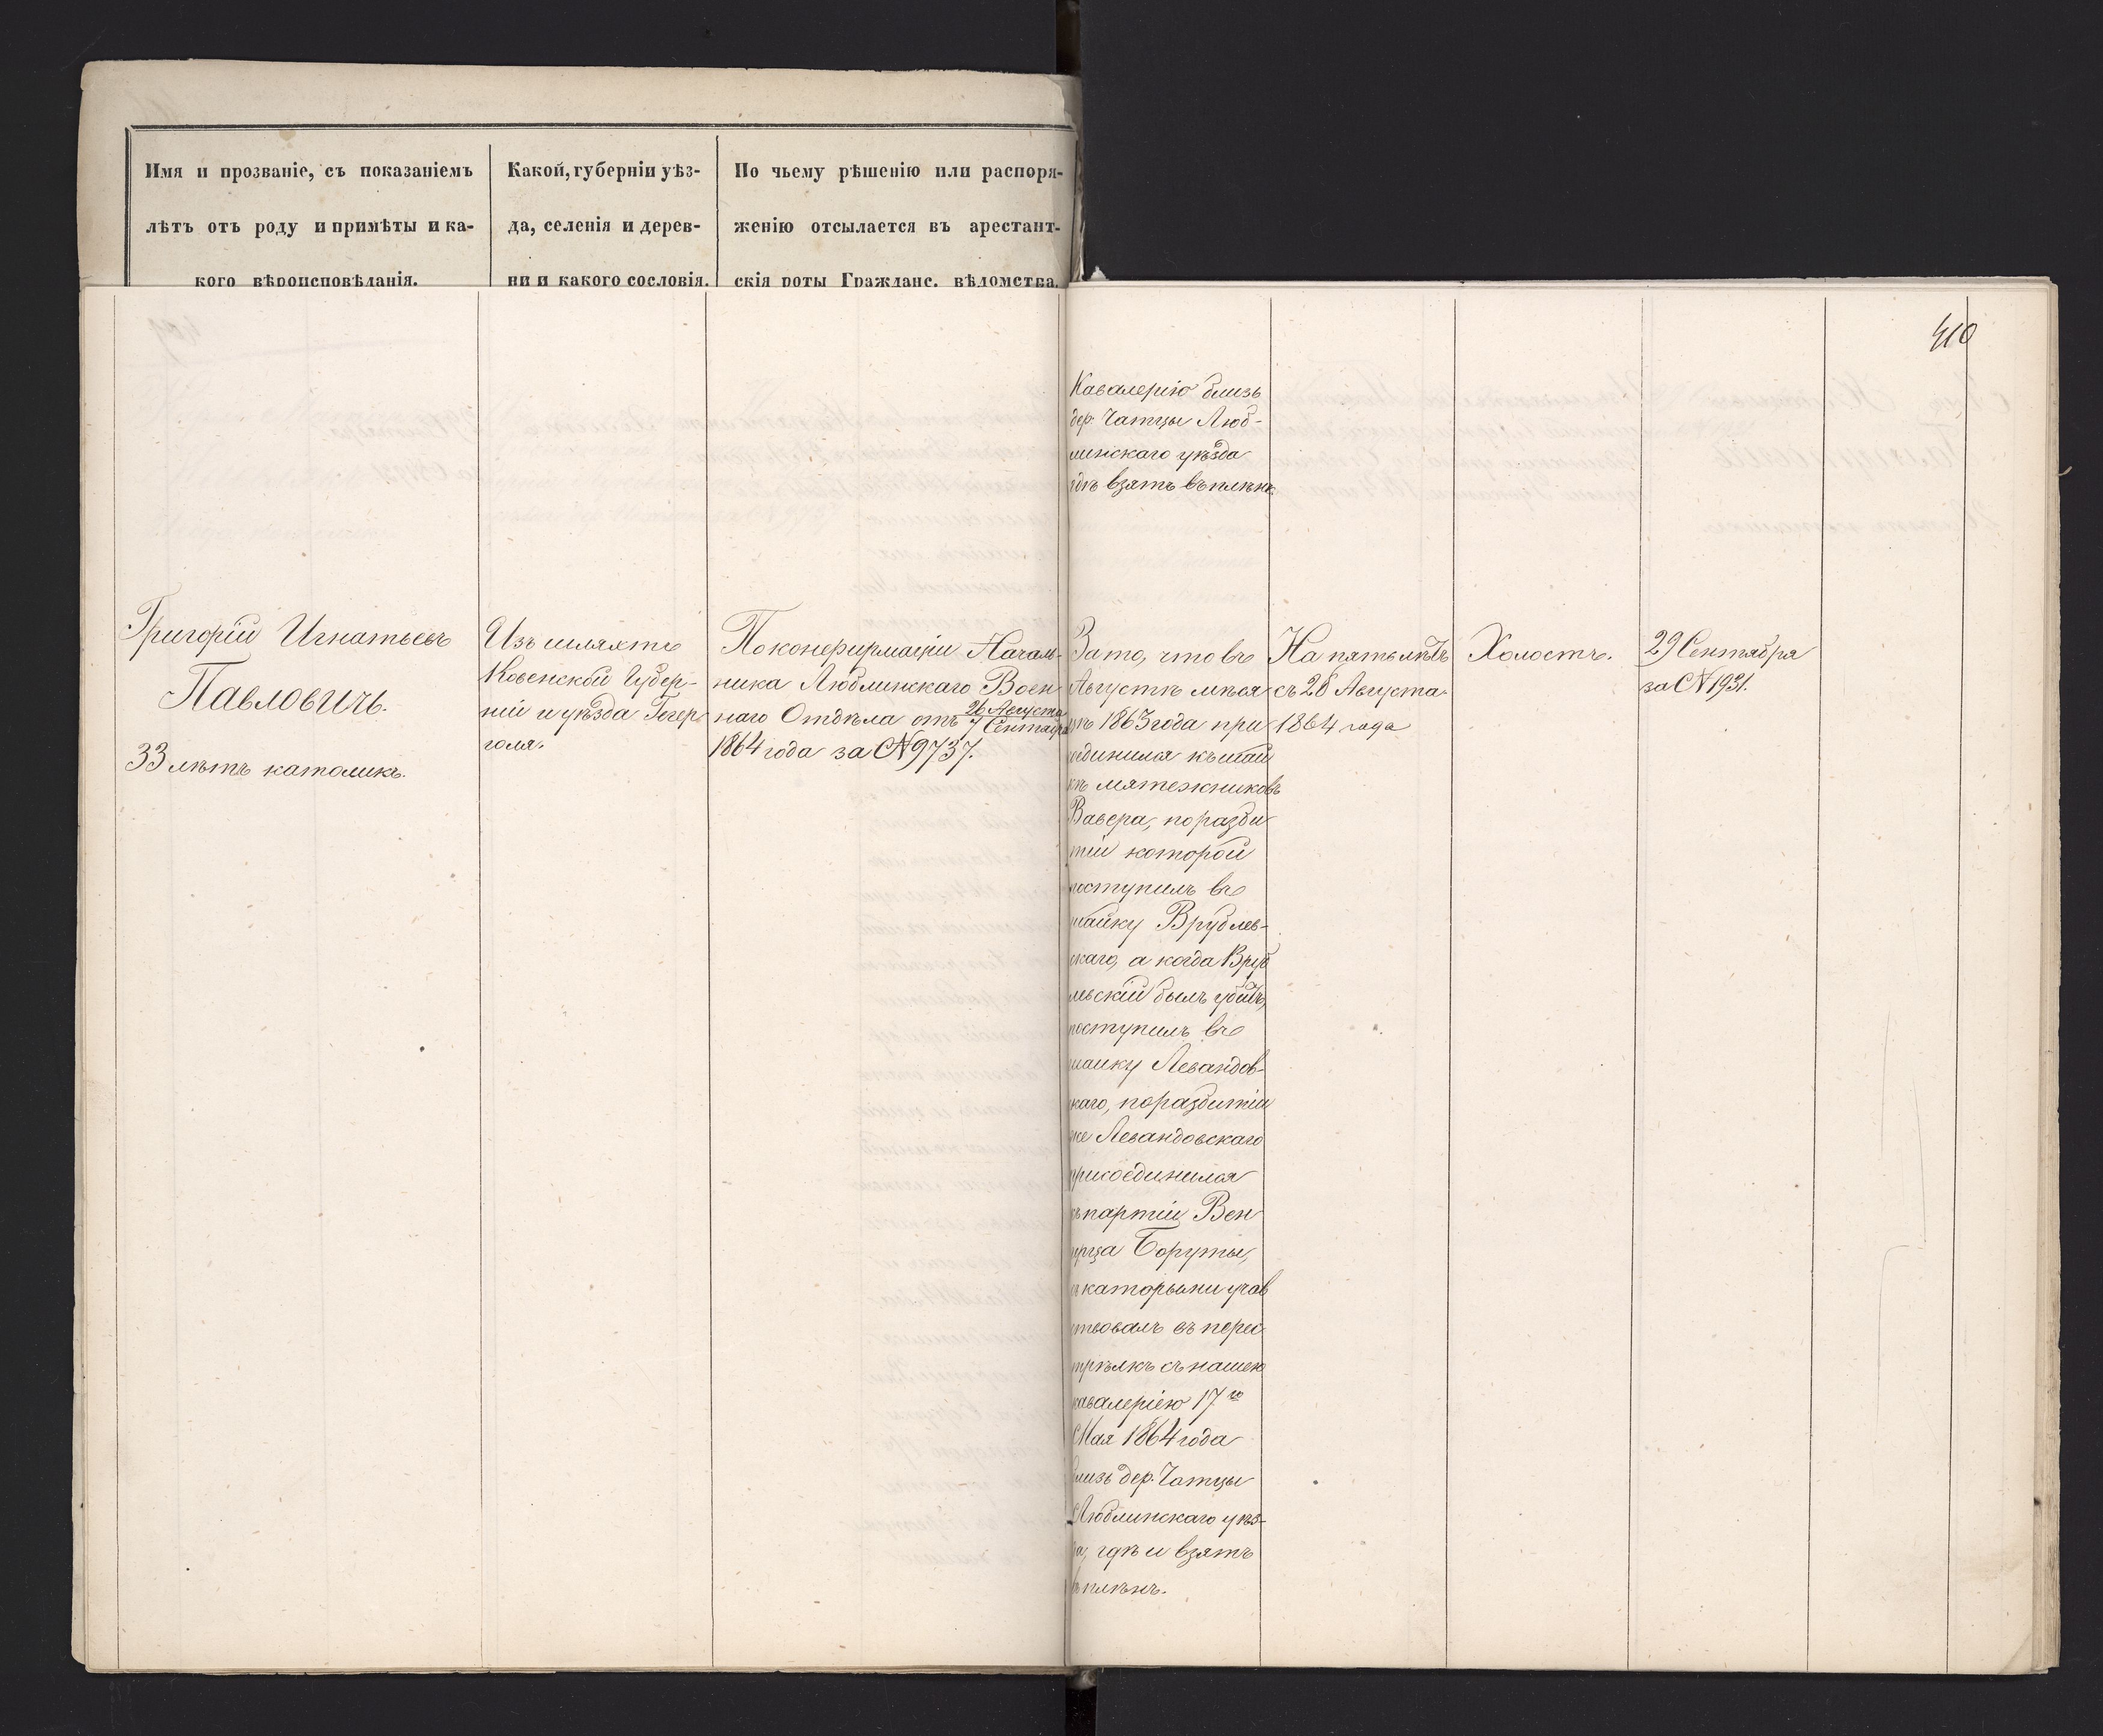 Имя и прозваніе, съ показаніемъ
лѣтъ отъ роду и примѣты и ка-
кого вѣроисповѣданія.
Какой, губерніи уѣз-
да, селенія и дерев-
ни и какого сословія.
По чьему рѣшенію или распоря-
женію отсылается въ арестант-
скія роты Гражданс. вѣдомства.
410
Кавалерію близь
дер. Чатцы Люб-
линскаго уѣзда
гдѣ взятъ въ плѣнъ.
Григорій Игнатьевъ
Павловичъ.
33 лѣтъ католикъ.
Изъ шляхты
Ковенской Губер-
ніи и уѣзда
По конфирмаціи Началь-
ника Люблинскаго Воен
наго Отдѣла отъ 26 Августа
7 Сентября
1864 года за № 9737.
За то, что въ
Августѣ мѣся
цѣ 1863 года при
единился къ шай
кѣ мятежниковъ
Вавера, по разби
тіи которой
поступилъ въ
шайку Врублев-
скаго, а когда Вруб
левскій былъ убитъ,
поступилъ въ
шайку Левандов-
скаго, по разбитіи
же Левандовскаго
присоединился
къ партіи Вен
герца Боруты,
съ каторыми учав
ствовалъ въ перес
трѣлкѣ съ нашею
кавалеріею 17го
Мая 1864 года
близь дер. Чатцы
Люблинскаго уѣз-
да, гдѣ и взятъ
въ плѣнъ.
На пять лѣтъ
съ 28 Августа
1864 года
Холостъ.
29 Сентября
за № 1931.